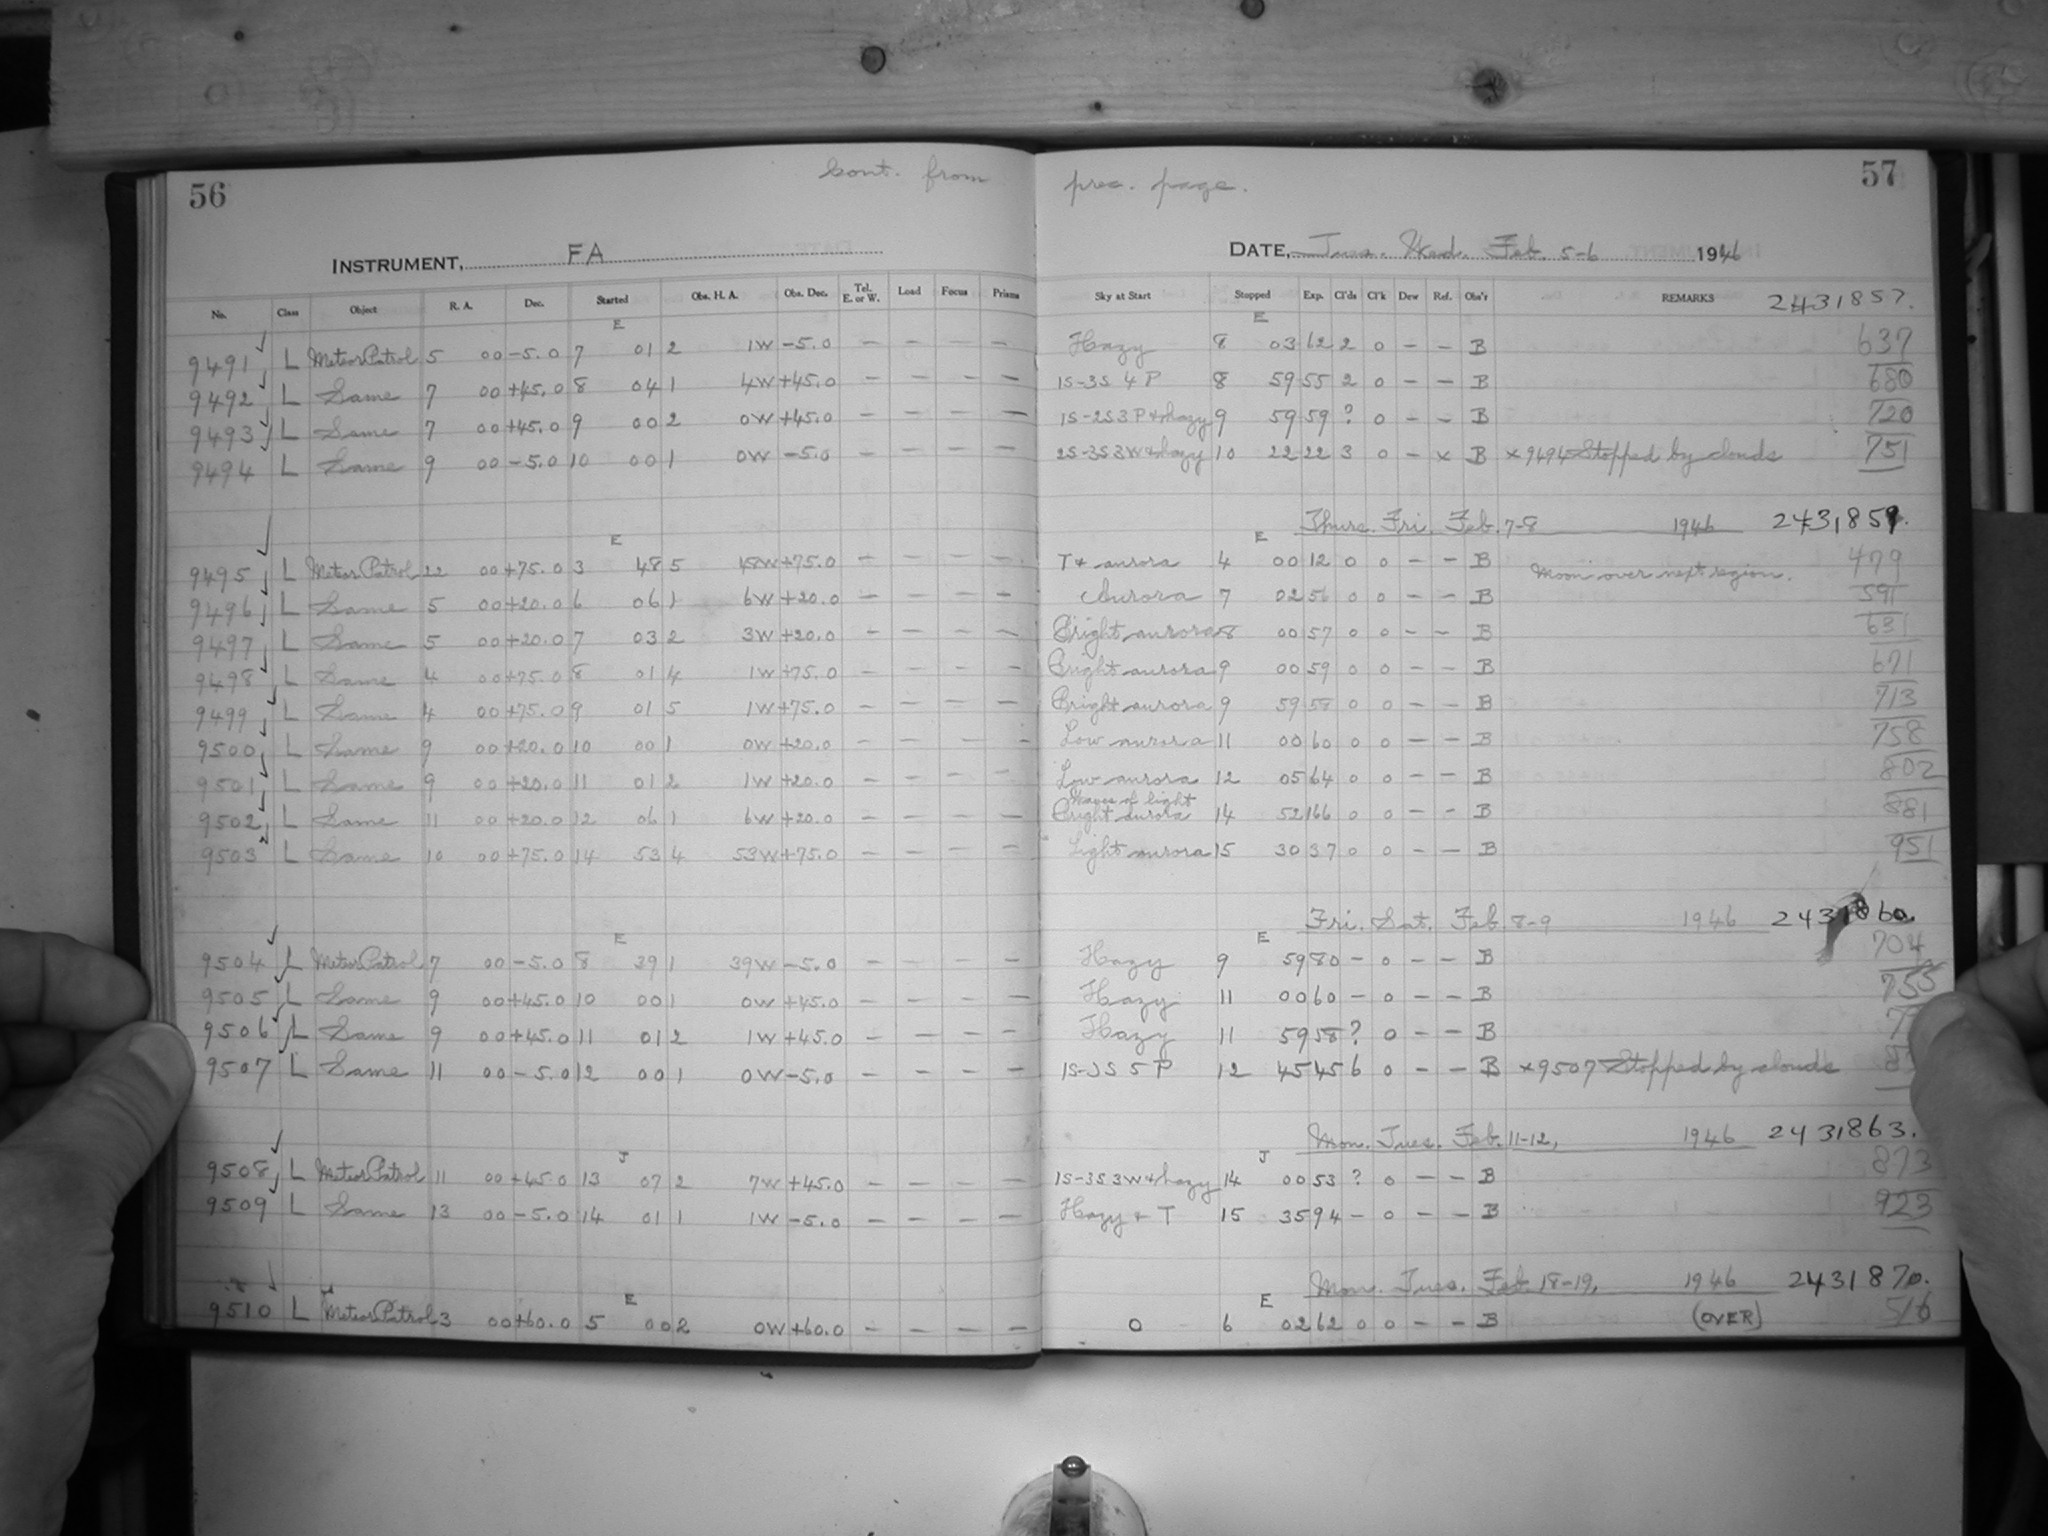 56 Cont. from prec. page. 57
INSTRUMENT, FA DATE, Tues. Wed. Feb. 5-6 1946
No. Class Object R. A. Dec. Started Obs. H. A. Obs. Dec. Tel. E. or W. Load Focus Prisms Sky at Start Stopped Exp. Cl'ds Cl'k Dew Ref. Obs'r REMARKS 2431857.
E E
9491 L Meteor Patrol 5 00 -5.0 7 01 2 1W -5.0 — — — — Hazy 8 03 62 2 0 — — B 637
9492 L Same 7 00 +45.0 8 04 1 4W +45.0 — — — — 1S-3S 4 P 8 59 55 2 0 — — B 680
9493 L Same 7 00 +45.0 9 00 2 0W +45.0 — — — — 1S-2S 3 P + hazy 9 59 59 ? 0 — — B 720
9494 L Same 9 00 -5.0 10 00 1 0W -5.0 — — — — 2S-3S 3W + hazy 10 22 22 3 0 — x B x 9494 Stopped by clouds 751
Thurs. Fri. Feb. 7-8 1946 2431859.
E E
9495 L Meteor Patrol 22 00 +75.0 3 48 5 48W +75.0 — — — T + aurora 4 00 12 0 0 — — B Moon over next region. 479
9496 L Same 5 00 +20.0 6 06 1 6W +20.0 — — — — Aurora 7 02 56 0 0 — — B 591
9497 L Same 5 00 +20.0 7 03 2 3W +20.0 — — — — Bright aurora 8 00 57 0 0 — — B 631
9498 L Same 4 00 +75.0 8 01 4 1W +75.0 — — — — Bright aurora 9 00 59 0 0 — — B 671
9499 L Same 4 00 +75.0 9 01 5 1W +75.0 — — — — Bright aurora 9 59 58 0 0 — — B 713
9500 L Same 9 00 +20.0 10 00 1 0W +20.0 — — — — Low aurora 11 00 60 0 0 — — B 758
9501 L Same 9 00 +20.0 11 01 2 1W +20.0 — — — — Low aurora 12 05 64 0 0 — — B 802
Waves of light
9502 L Same 11 00 +20.0 12 06 1 6W +20.0 — — — — Bright aurora 14 52 166 0 0 — — B 881
9503 L Same 10 00 +75.0 14 53 4 53W +75.0 — — — — Light aurora 15 30 37 0 0 — — B 951
Fri. Sat. Feb. 8-9 1946 2431860.
E E
9504 L Meteor Patrol 7 00 -5.0 8 39 1 39W -5.0 — — — — Hazy 9 59 80 — 0 — — B 704
9505 L Same 9 00 +45.0 10 00 1 0W +45.0 — — — — Hazy 11 00 60 — 0 — — B 755
9506 L Same 9 00 +45.0 11 01 2 1W +45.0 — — — — Hazy 11 59 58 ? 0 — — B
9507 L Same 11 00 -5.0 12 00 1 0W -5.0 — — — — 1S-3S 5 P 12 45 45 6 0 — — B x 9507 Stopped by clouds
Mon. Tues. Feb. 11-12, 1946 2431863.
J J
9508 L Meteor Patrol 11 00 +45.0 13 07 2 7W +45.0 — — — — 1S-3S 3W + hazy 14 00 53 ? 0 — — B 873
9509 L Same 13 00 -5.0 14 01 1 1W -5.0 — — — — Hazy + T 15 35 94 — 0 — — B 923
Mon. Tues. Feb. 18-19, 1946 2431870.
E E
9510 L Meteor Patrol 3 00 +60.0 5 00 2 0W +60.0 — — — — 0 6 02 62 0 0 — — B (OVER) 516